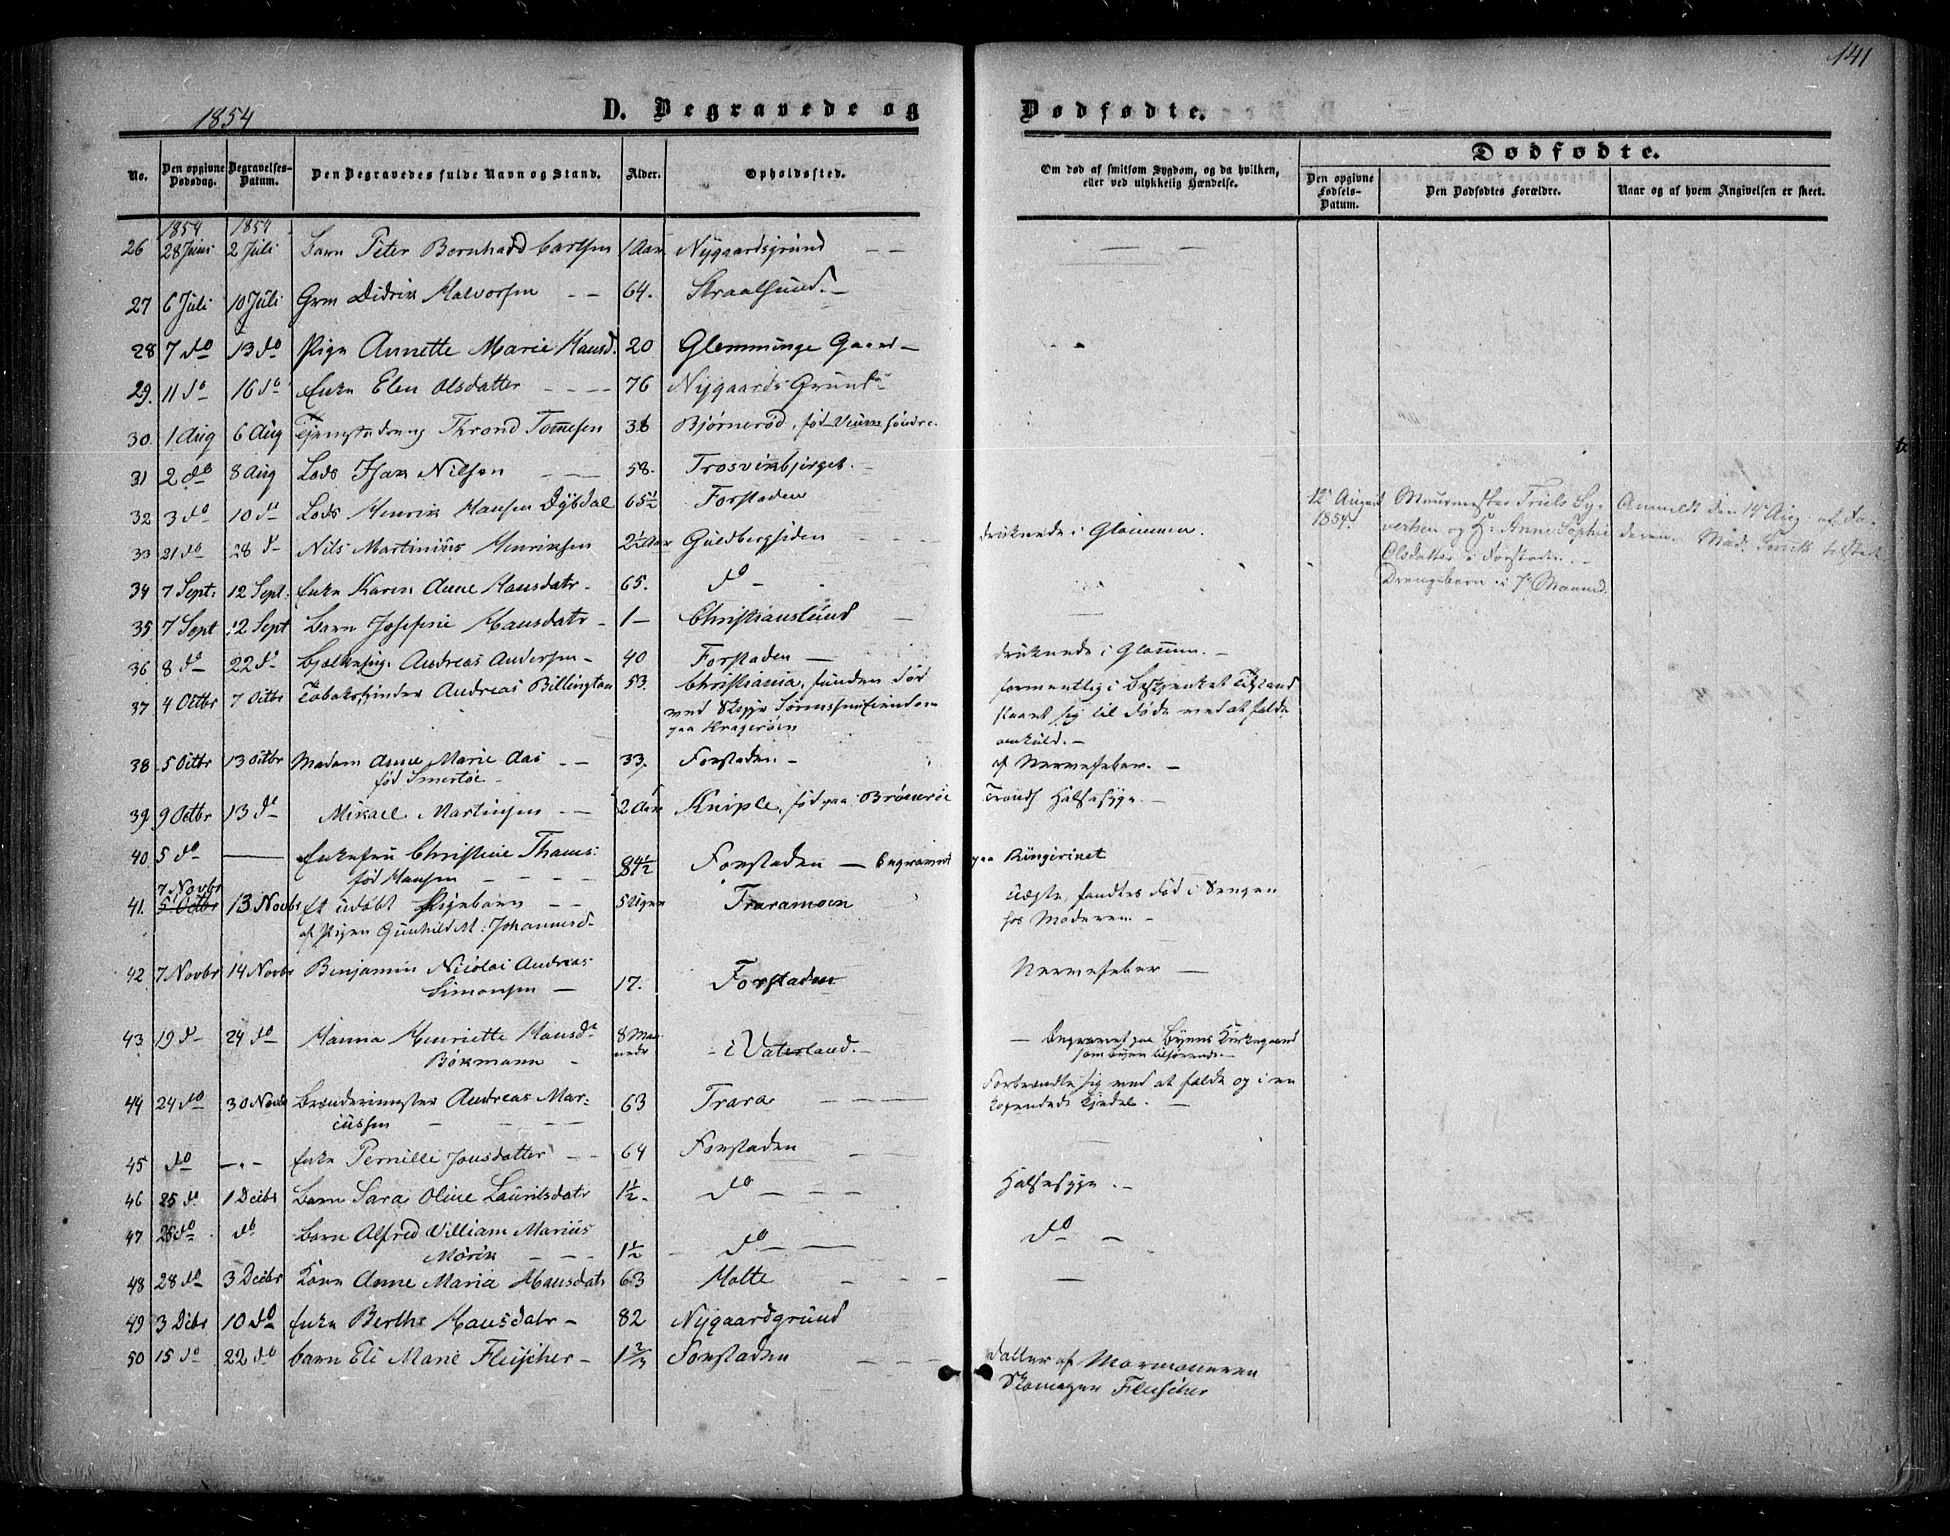 141
1854
D. Begravede og
Dødfødte.
No.
Den opgivne Dødsdag.
Begravelses-Datum.
Den Begravedes fulde Navn og Stand.
Alder.
Opholdssted.
Om død af smitsom Sygdom, og da hvilken, eller ved ulykkelig Hændelse.
Dødfødte.
Den opgivne Fødsels-Datum.
Den Dødfødtes Forældre.
Naar og af hvem Angivelsen er skeet.
1854 1854
26 28 Juni 2 Juli Barn Peter Bernhard Carlsen 1 Aar Nygaardsgrund
27 6 Juli 10 Juli Grm Didrik Halvorsen 64. Straalsund.
28 7 do 13 do Pige Annette Marie Hansd. 20 Glemminge Gaard
29. 11 do 16 do Enke Elen Olsdatter 76 Nygaards Grund
30. 1 Aug 6 Aug Thrond Tønnesen 36 Bjørnerød, fød Veum søndre
31 2 do 8 Aug Lods Isak Nilsen 58. Trosvikbjerget.
32 3 do 10 do Lods Henrik Hansen Dybdal 65½ Forstaden
33 21 do 28 d Nils Martinius Henriksen 2½ Aar Guldbergsiden druknede i Glommen.
12 August 1854 Muurmester Truls By-
verksen og H: Anne Sophie
Olsdatter i Forstaden.
Drengebarn i 7 Maaned
Anmeldt den 14 Aug. af Fa-
deren. Mad.
34 7 Sept: 12 Sept: Enke Karen Anne Hansdatr. 65. do
35. 7 Sept 12 Sept Barn Josefine Hansdatr 1 Christianslund
36 8 do 22 do Andreas Andersen 40 Forstaden druknede i Glommen.
37 4 Octbr 7 Octbr Tobaksspinder Andreas Billington 53. Christiania, funden død
ved
paa Kragerøen
formentlig i beskjenket Tilstand
slaaet sig til døde ved at falde
omkuld.
38. 5 Octbr 13 Octbr Madam Anne Marie Aas 33. Forstaden af Nervefeber.
fød Smertøe
39. 9 Octbr 13 do Mikael Martinsen 2 Aar Kniple, fød paa Halsesyge
40. 5 do Enkefru Christine Thams: 84½ Forstaden Begravet paa
fød Hansen
7 Novbr
41. 5 Octbr 13 Novbr Et udøbt Pigebarn 5 Uger Traramoen fandtes død i Sengen
af Pigen Gunhild M: Johannesd. hos Moderen.
42 7 Novbr 14 Novbr Benjamin Nicolai Andreas 17. Forstaden Nervefeber
Simonsen
43 19 d 24 do Hanna Henriette Hansd 8 Ma-
aneder i Vaterland. Begravet paa Byens Kirkegaard
Bøkmann som Byen tilhørende.
44 24 do 30 Novbr Brænderimester Andreas Mar- 63 Trara Forbrændte sig ved at falde og i en
cussen kogendes Kjedel.
45 do Enke Pernille Jonsdatter 64 Forstaden
46 25 do 1 Decbr Barn Sara Oline Lauritsdatr 1½. do Halsesyge.
47 25 do do Barn Alfred William Marius 1½ do do
Mørik
48 28 do 3 Decbr Kone Anne Maria Hansdatr 63 Holte
49 3 Dcbr 10 do Enke Berthe Hansdatr 82 Nygaardgrund
50 15 do 22 do barn Eli Marie Fleischer 1⅔ Forstaden Datter af Mormoneren
Skomager Fleischer